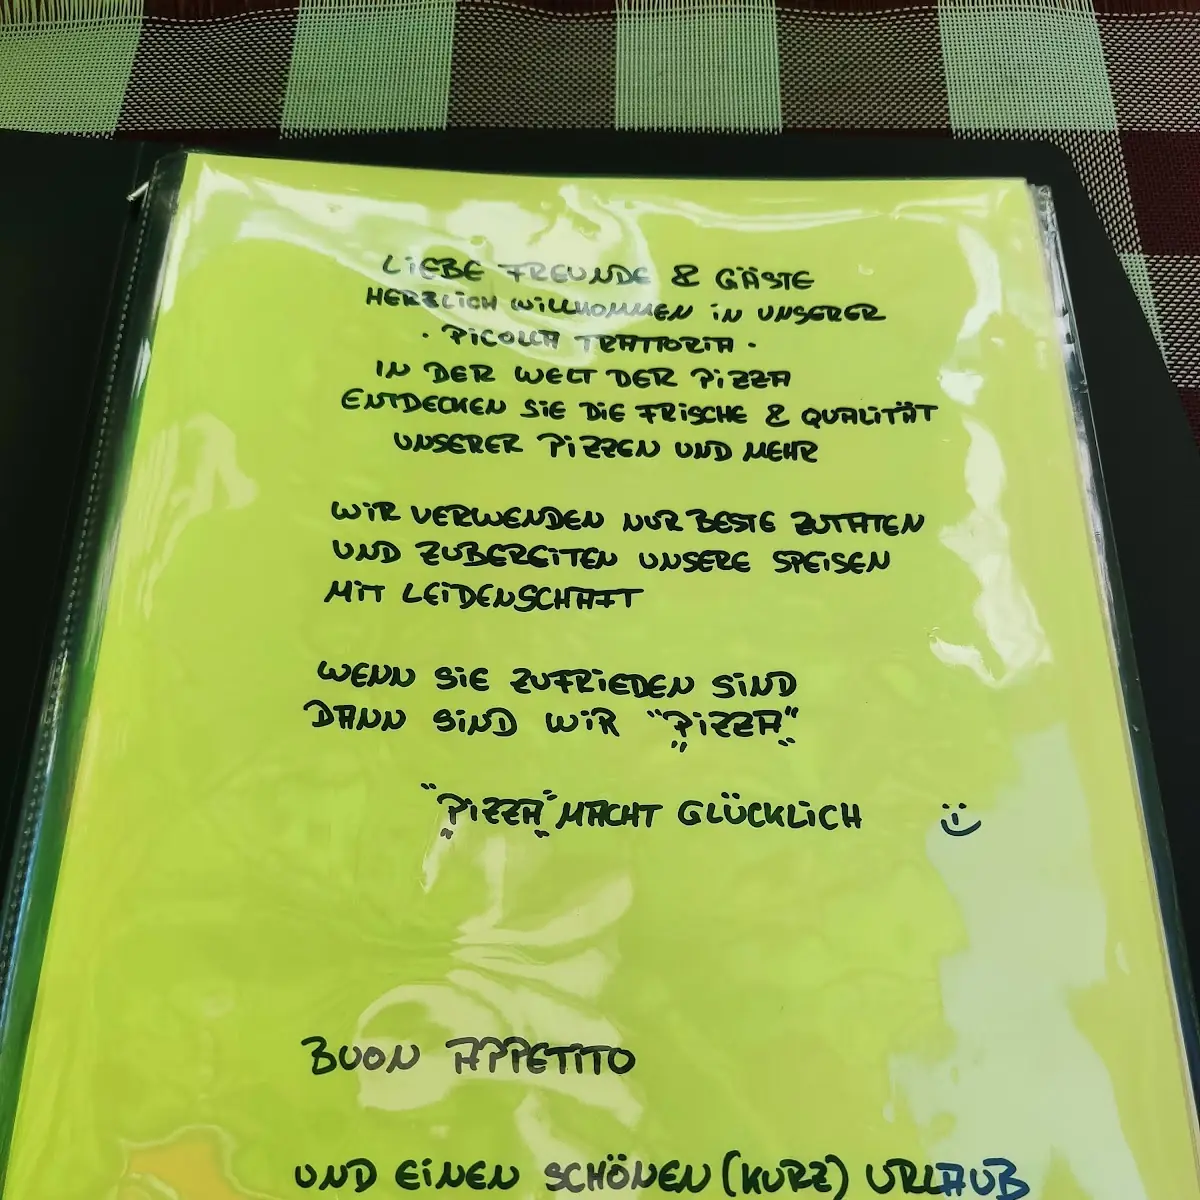 LIEBE FREUNDE & GÄSTE
HERZLICH WILLKOMMEN IN UNSERER
· PICOLLA TRATTORIA ·
IN DER WELT DER PIZZA
ENTDECKEN SIE DIE FRISCHE & QUALITÄT
UNSERER PIZZEN UND MEHR
WIR VERWENDEN NUR BESTE ZUTATEN
UND ZUBEREITEN UNSERE SPEISEN
MIT LEIDENSCHAFT
WENN SIE ZUFRIEDEN SIND
DANN SIND WIR "PIZZA"
"PIZZA" MACHT GLÜCKLICH
BUON APPETITO
UND EINEN SCHÖNEN (KURZ) URLAUB